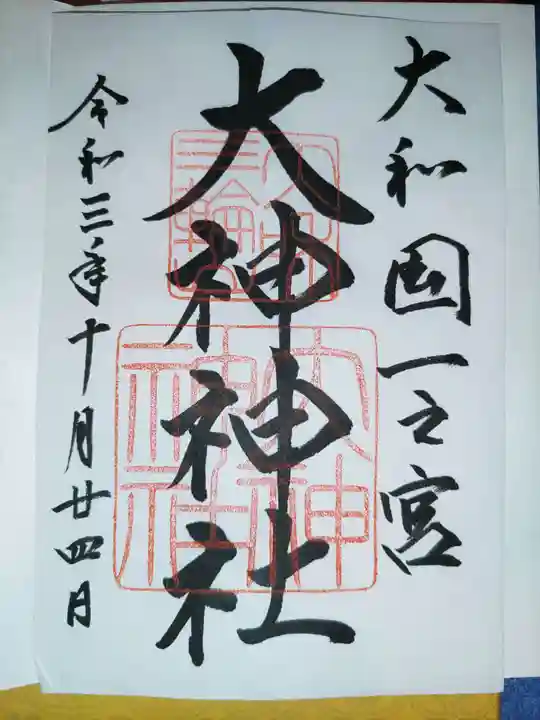 大和国一之宮
大神神社
令和三年十月廿四日
三輪
大神
神社